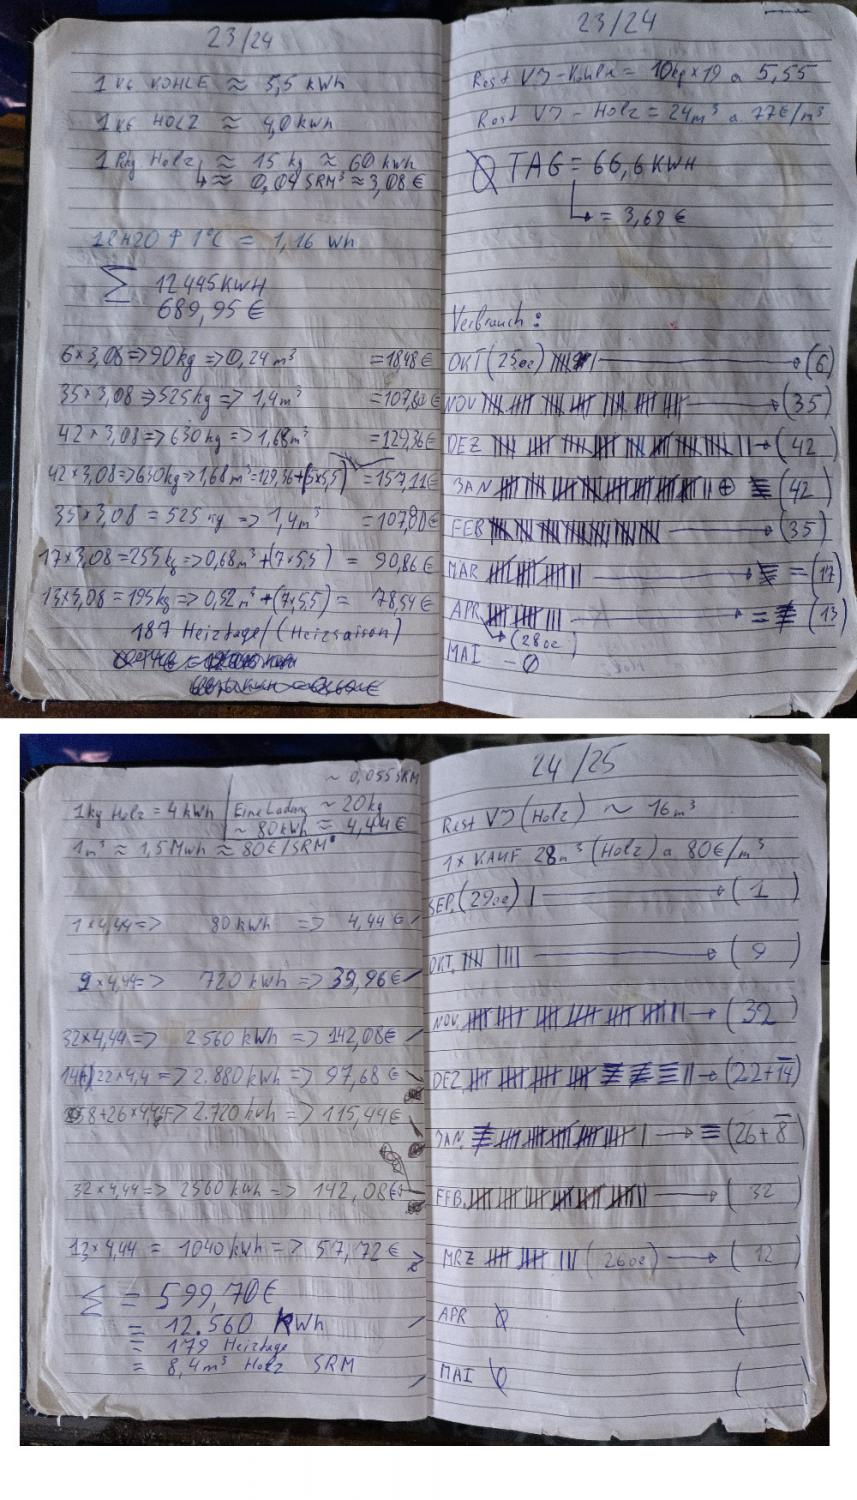 23/24
1 KG KOHLE ≈ 5,5 kWh
1 KG HOLZ ≈ 4,0 kWh
1 Pckg Holz ≈ 15 kg ≈ 60 kWh
↳ ≈ 0,04 SRM³ ≈ 3,08 €
1l H2O ↑ 1°C = 1,16 Wh
Σ 12445 KWH
689,95 €
6 x 3,08 => 90 kg => 0,24 m³ = 18,48 €
35 x 3,08 => 525 kg => 1,4 m³ = 107,80 €
42 x 3,08 => 630 kg => 1,68 m³ = 129,36 €
42 x 3,08 => 630 kg => 1,68 m³ = 129,36 + (5x5,5) = 157,11 €
35 x 3,08 = 525 kg => 1,4 m³ = 107,80 €
17 x 3,08 = 255 kg => 0,68 m³ + (7x5,5) = 90,86 €
13 x 3,08 = 195 kg => 0,52 m³ + (7x5,5) = 78,54 €
187 Heiztage / (Heizsaison)
23/24
Rest VJ - Kohle = 10kg x 19 a 5,55
Rest VJ - Holz = 24 m³ a 77 €/m³
Ø TAG = 66,6 KWH
↳ = 3,69 €
Verbrauch:
OKT (25oe) → (6)
NOV → (35)
DEZ → (42)
JAN ⊕ (42)
FEB → (35)
MAR → = (17)
APR → = (13)
→ (28oe)
MAI - Ø
~ 0,055 SRM
1kg Holz = 4 kWh | Eine Ladung ~ 20 kg
~ 80 kWh ≈ 4,44 €
1 m³ ≈ 1,5 Mwh ≈ 80 €/SRM
1 x 4,44 => 80 kWh => 4,44 €
9 x 4,44 => 720 kWh => 39,96 €
32 x 4,44 => 2560 kWh => 142,08 €
22 x 4,4 => 2.880 kWh => 97,68 €
8 + 26 x 4,44 => 2.720 kWh => 115,44 €
32 x 4,44 => 2560 kWh => 142,08 €
13 x 4,44 = 1040 kWh => 57,72 €
Σ = 599,70 €
= 12.560 kWh
= 179 Heiztage
= 8,4 m³ Holz SRM
24/25
Rest VJ (Holz) ~ 16 m³
1x KAUF 28 m³ (Holz) a 80 €/m³
SEP. (29oe) → (1)
OKT. → (9)
NOV. → (32)
DEZ. → (22+14)
JAN. → (26+8)
FEB. → (32)
MRZ (26oe) → (12)
APR Ø (
MAI Ø (